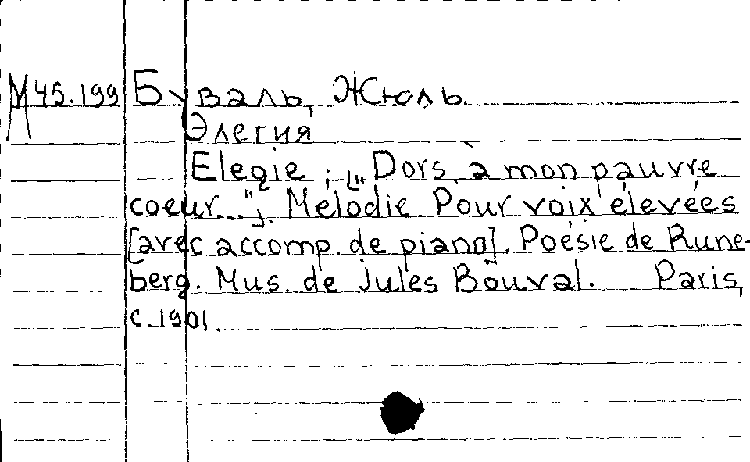 М45.199 Буваль, Жюль.
Элегия
Elegie; ["Dors, à mon pauvre
coeur..."]. Melodie Pour voix élevées
[avec accomp. de piano]. Poésie de Rune-
berg. Mus. de Jules Bouval. Paris,
c. 1901.